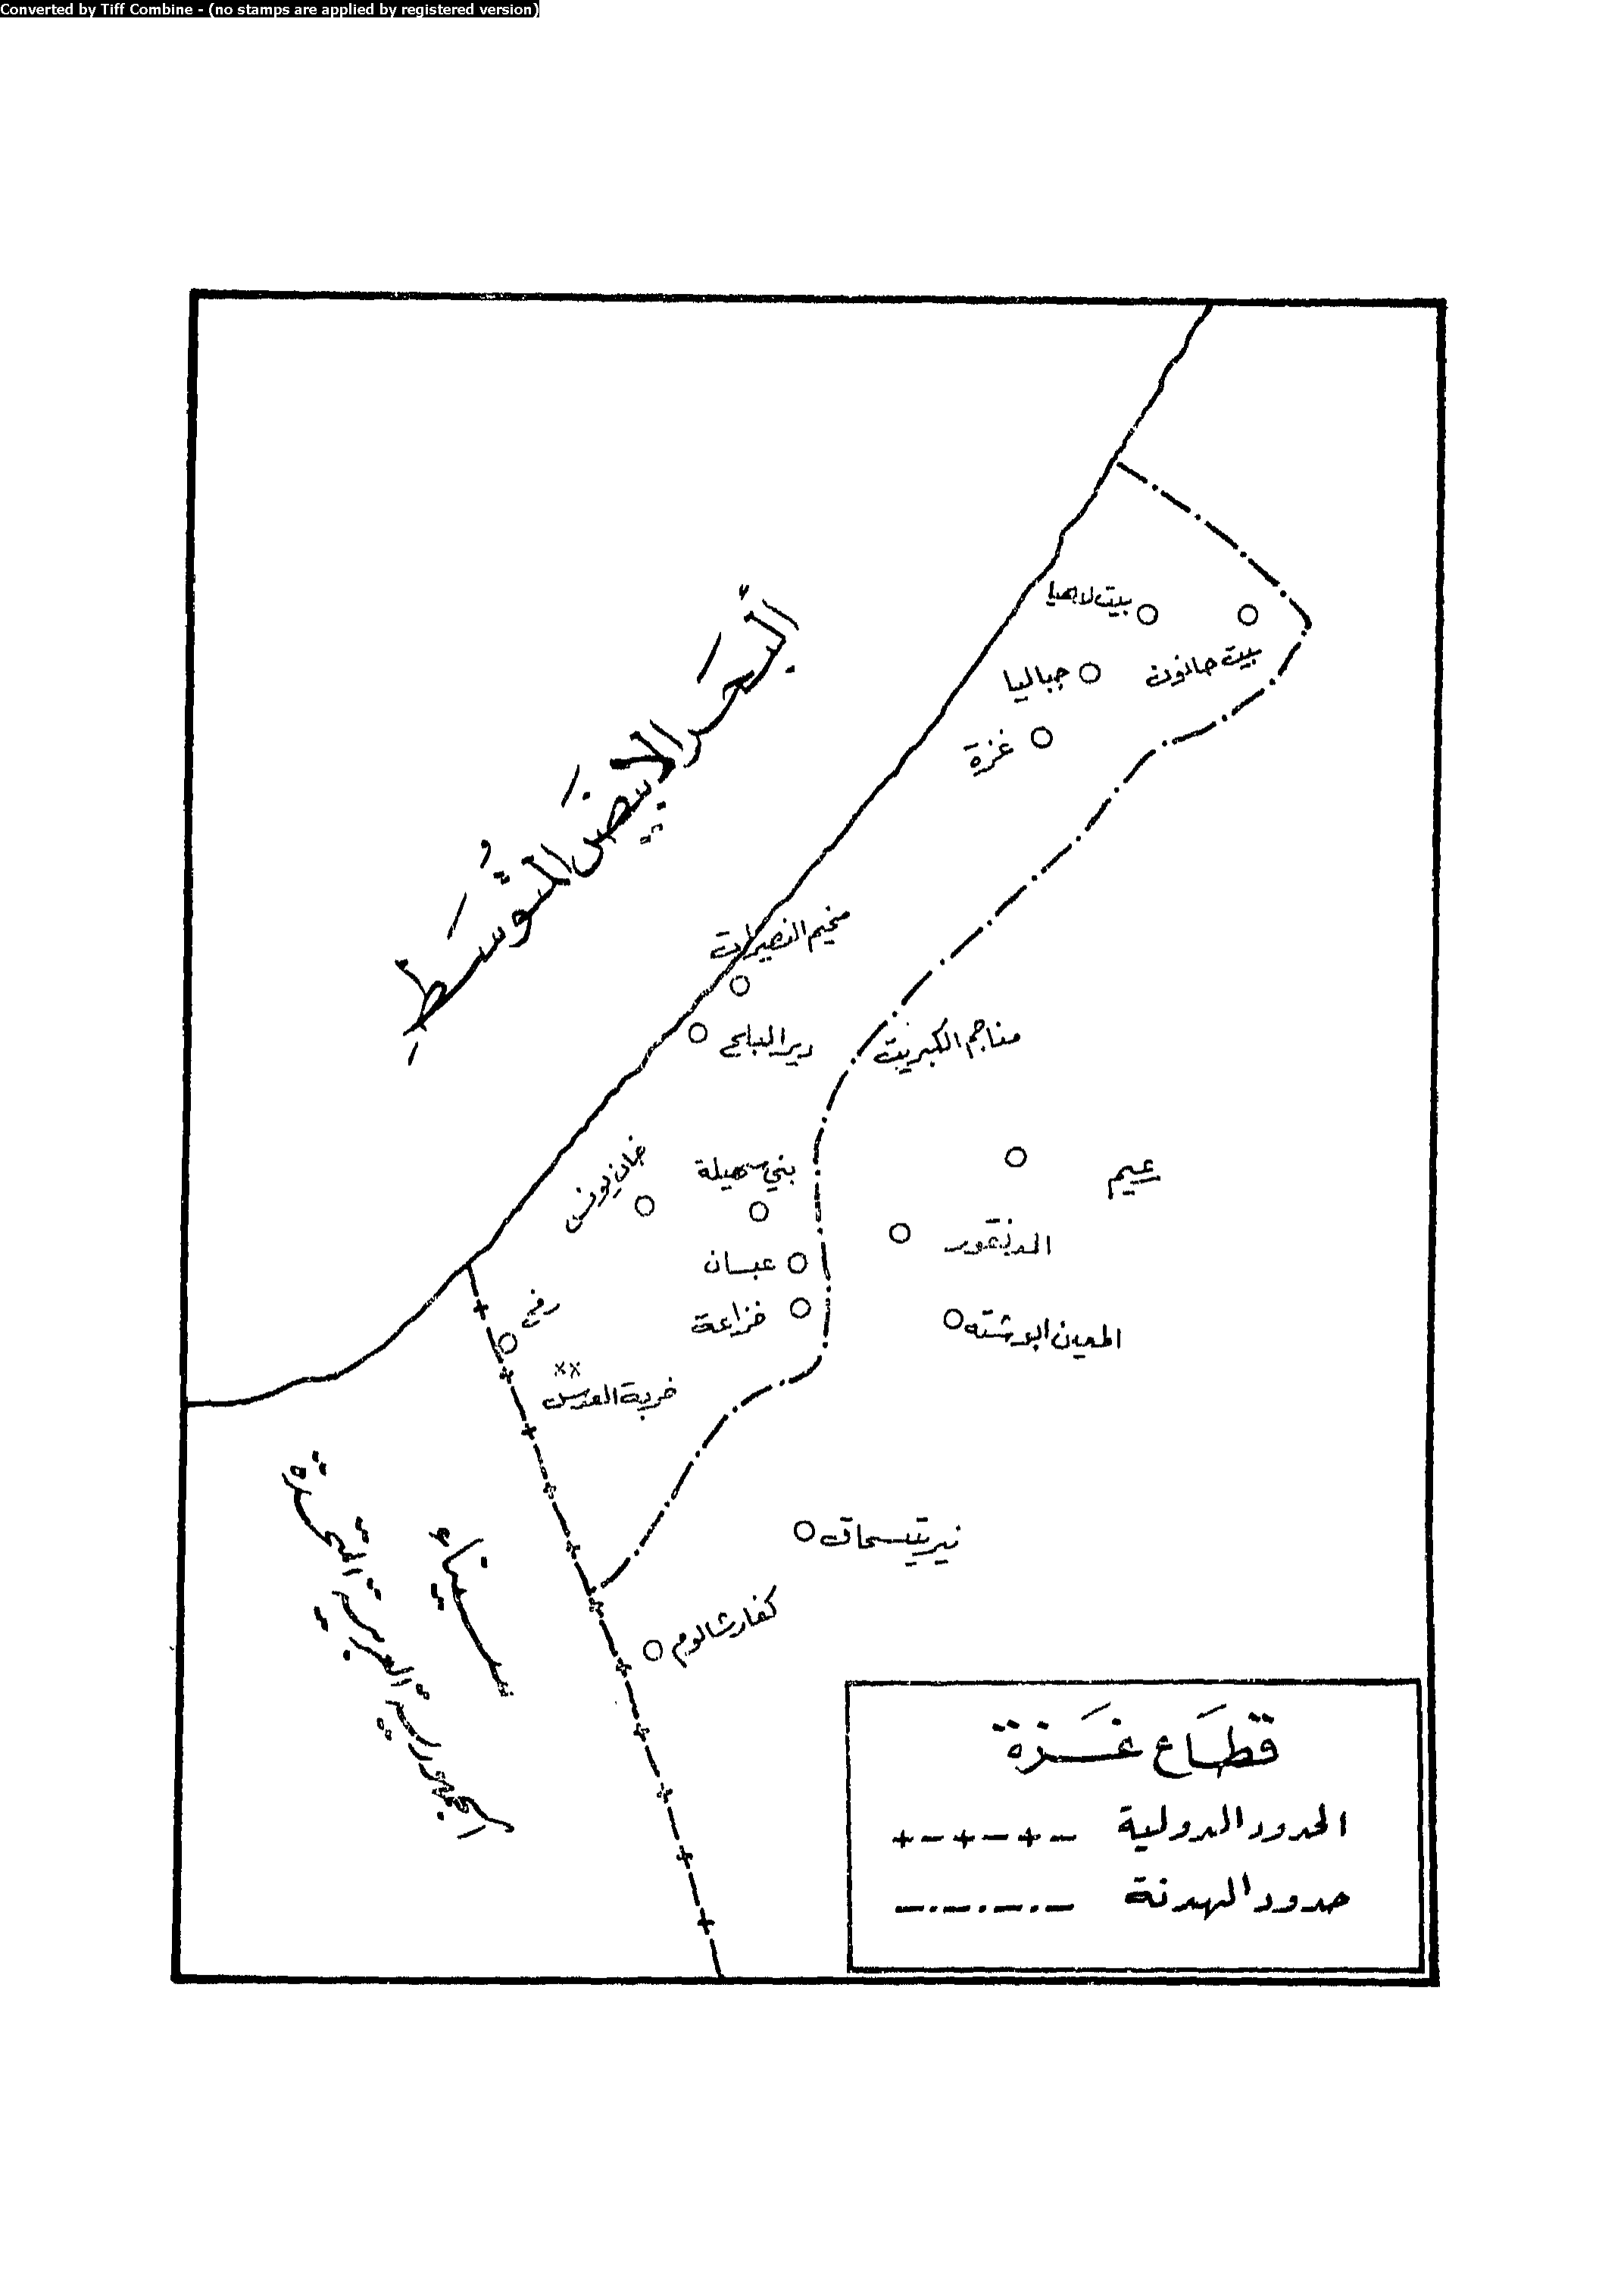 Converted by Tiff Combine - (no stamps are applied by registered version)
بيت لاهيا
بيت حانون
جباليا
غزة
البَحر الابيَض المتُوسَطِ
مخيم النصيرات
دير البلح
مناجم الكبريت
خان يونس
بني سهيلة
عبسان
خزاعة
رفح
xx
خربة العدس
المعين ابو شته
نير يتسحاق
كفار شالوم
سيناء
الجمهورية العربية المتحدة
قطَاع غَزة
الحدود الدولية
حدود الهدنة